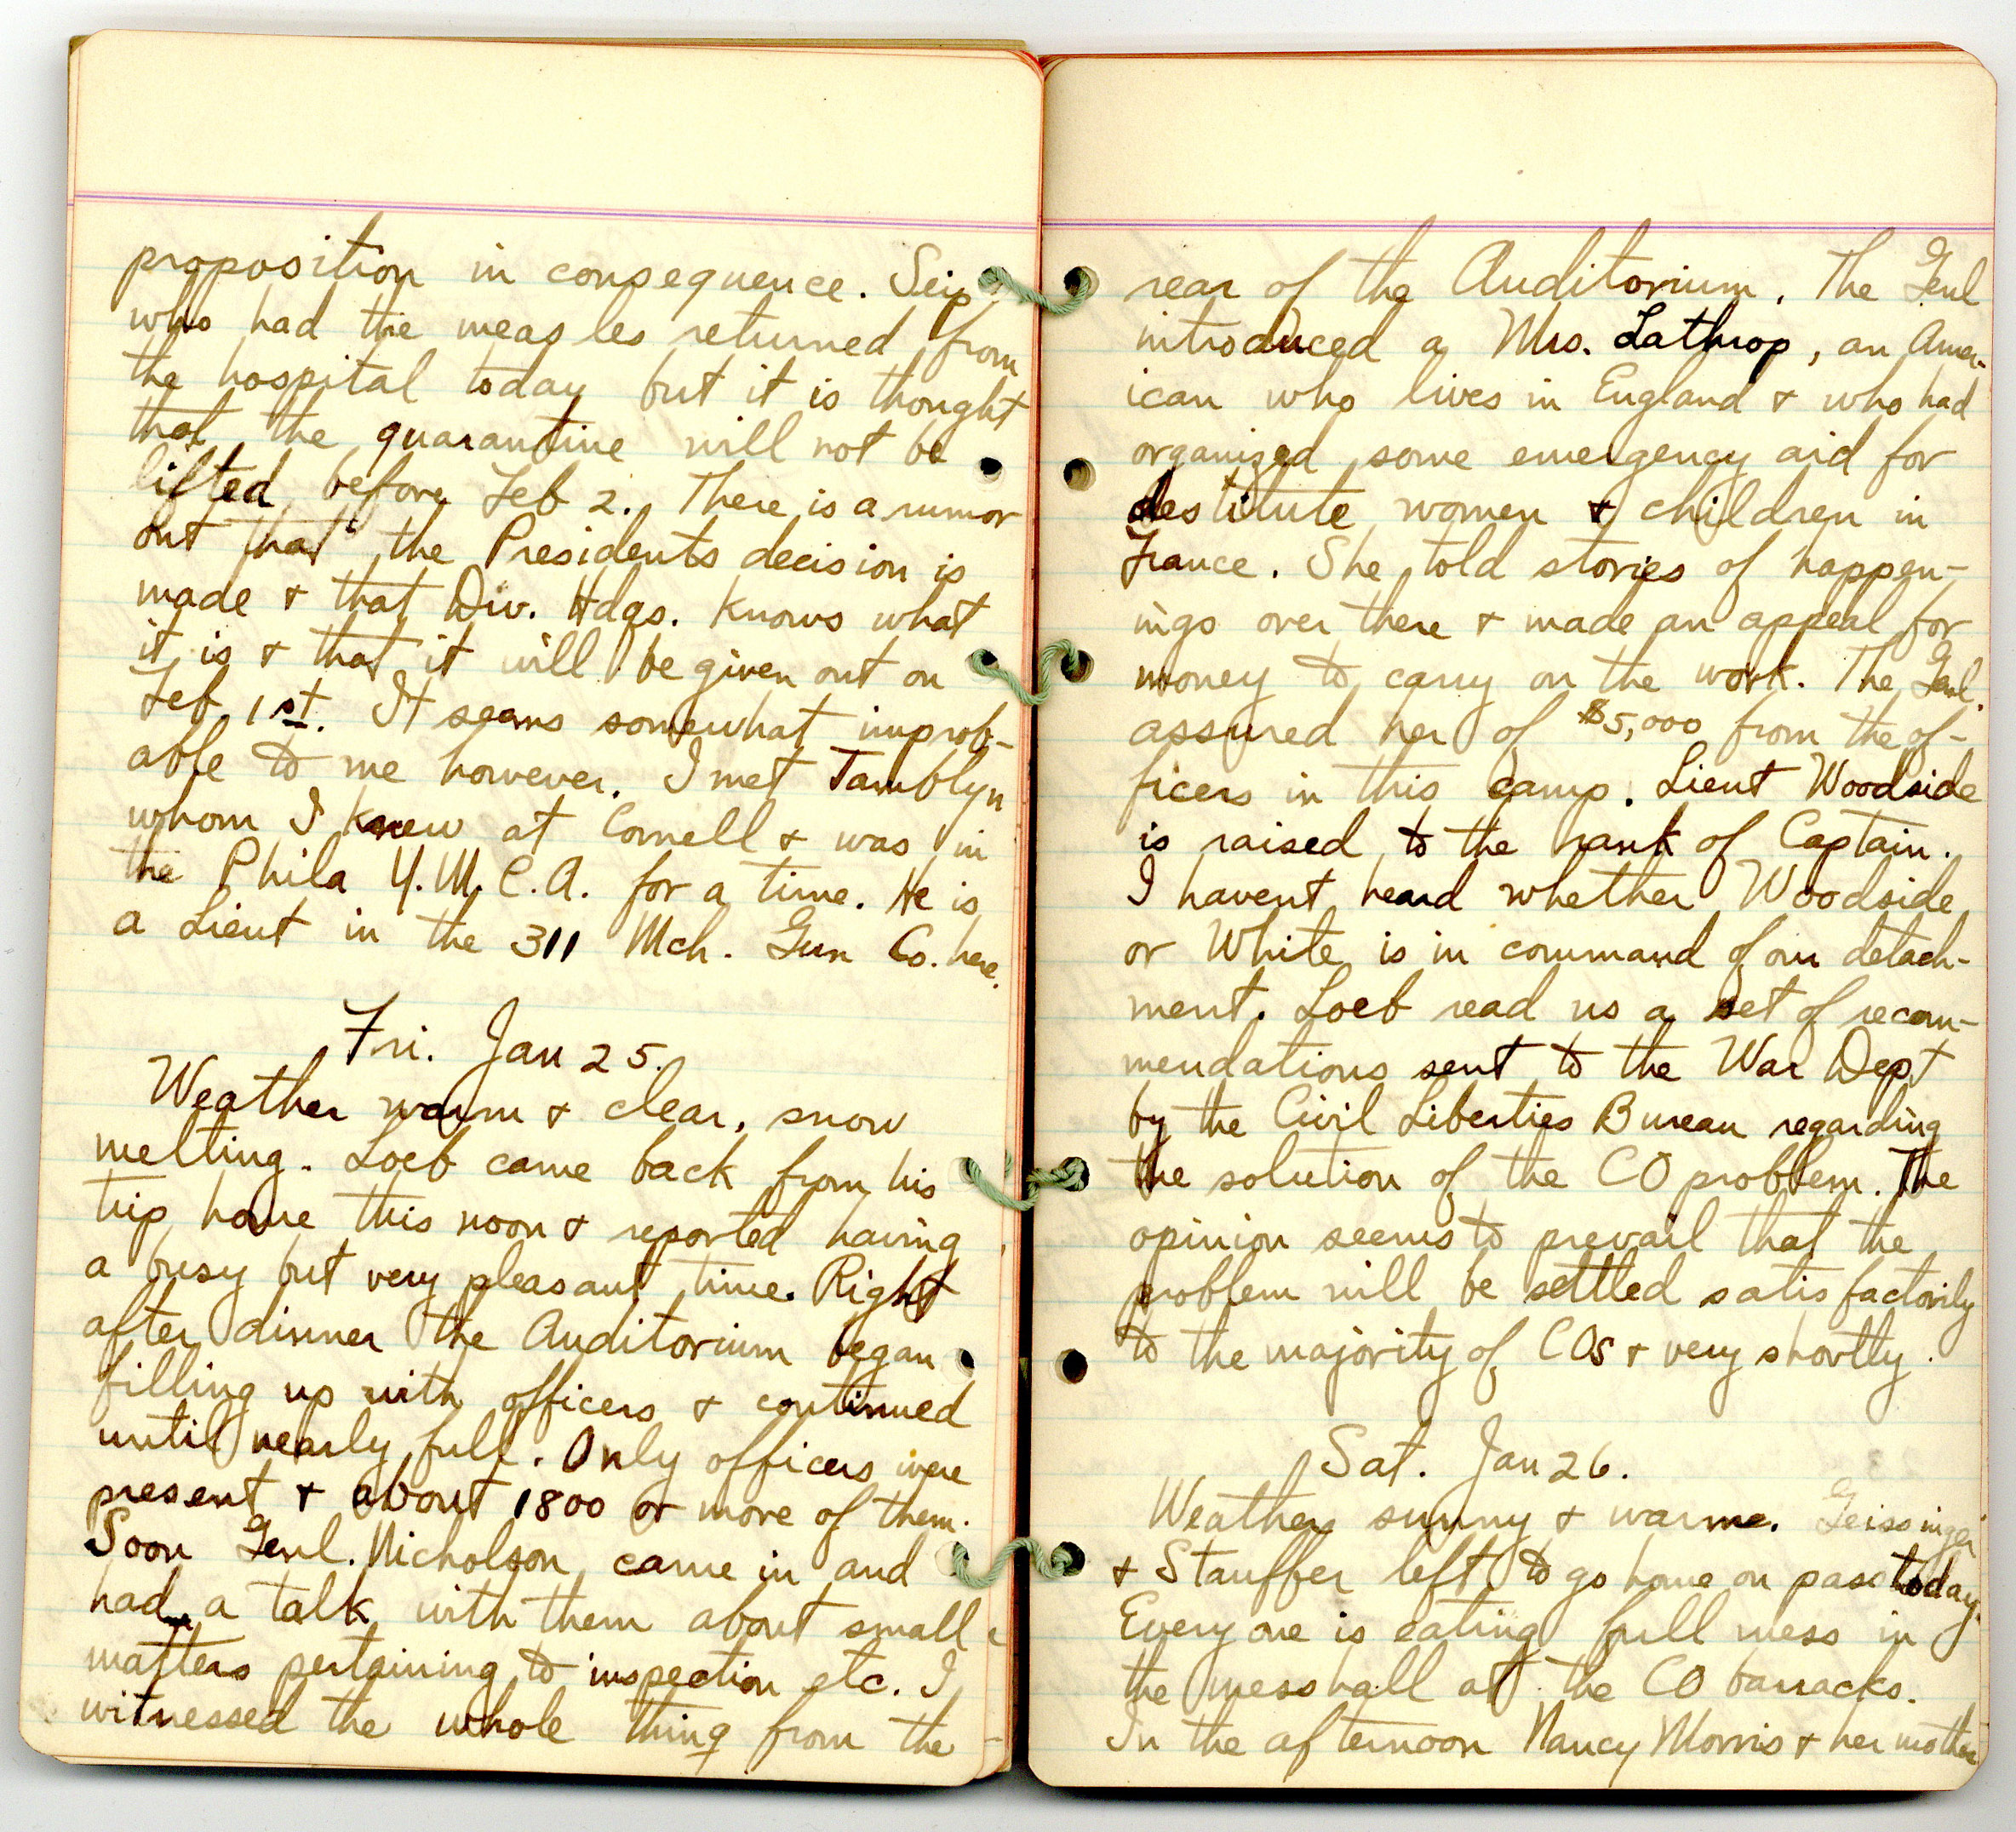 proposition in consequence. Seip
who had the measles returned from
the hospital today but it is thought
that the quarantine will not be
lifted before Feb 2. There is a rumor
out that the Presidents decision is
made & that Div. Hdqs. knows what
it is & that it will be given out on
Feb 1st. It seems somewhat improb-
able to me however. I met Tamblyn
whom I knew at Cornell & was in
the Phila Y.M.C.A. for a time. He is
a Lieut in the 311 Mch. Gun Co. here.
Fri. Jan 25.
Weather warm & clear, snow
melting. Loeb came back from his
trip home this noon & reported having
a busy but very pleasant time. Right
after dinner the Auditorium began
filling up with officers & continued
until nearly full. Only officers were
present & about 1800 or more of them.
Soon Genl. Nicholson came in and
had a talk with them about small
matters pertaining to inspection etc. I
witnessed the whole thing from the
rear of the Auditorium. The Genl
introduced a Mrs. Lathrop, an Amer-
ican who lives in England & who had
organized some emergency aid for
destitute women & children in
France. She told stories of happen-
ings over there & made an appeal for
money to carry on the work. The Genl.
assured her of $5,000 from the of-
ficers in this camp. Lieut Woodside
is raised to the rank of Captain.
I havent heard whether Woodside
or White is in command of our detach-
ment. Loeb read us a set of recom-
mendations sent to the War Dept
by the Civil Liberties Bureau regarding
the solution of the CO problem. The
opinion seems to prevail that the
problem will be settled satisfactorily
to the majority of COs & very shortly.
Sat. Jan 26.
Weather sunny & warme. Geissinger
& Stauffer left to go home on pass today.
Everyone is eating full mess in
the mess hall at the CO barracks.
In the afternoon Nancy Morris & her mother